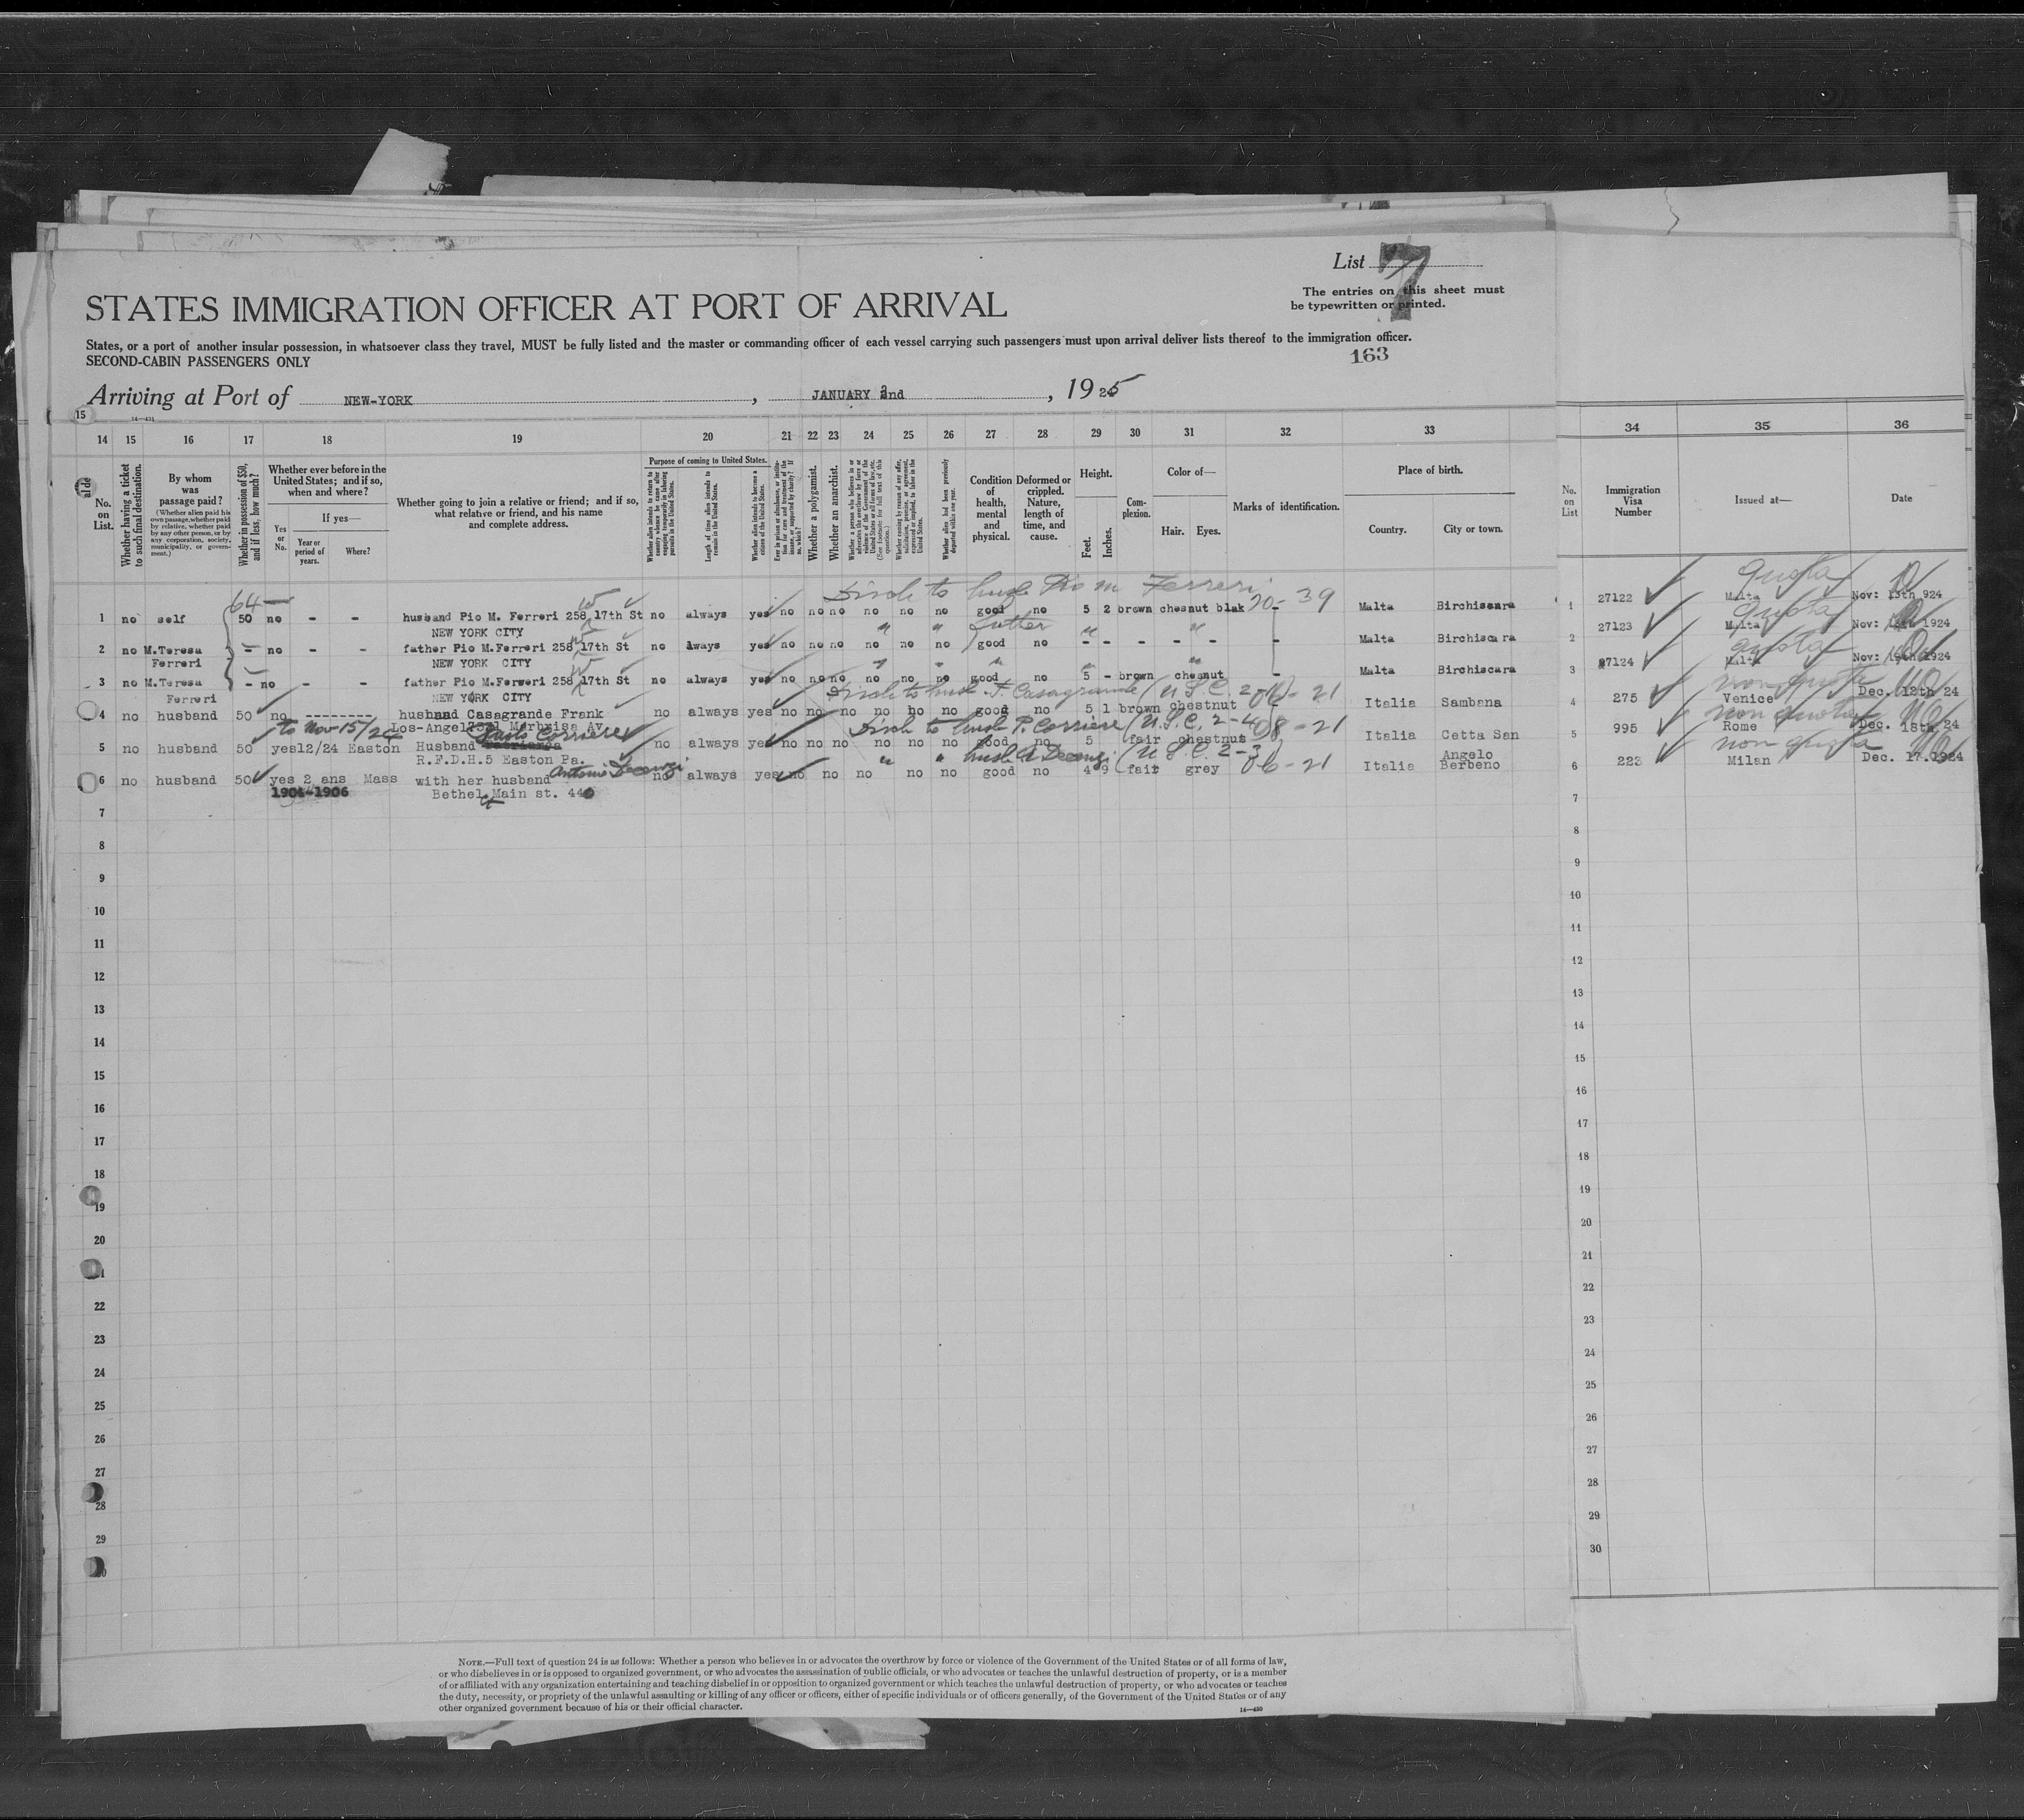 List 7
The entries on this sheet must
be typewritten or printed.
STATES IMMIGRATION OFFICER AT PORT OF ARRIVAL
States, or a port of another insular possession, in whatsoever class they travel, MUST be fully listed and the master or commanding officer of each vessel carrying such passengers must upon arrival deliver lists thereof to the immigration officer.
SECOND-CABIN PASSENGERS ONLY
163
Arriving at Port of NEW-YORK, JANUARY 2nd, 1925
15
14—431
14 15 16 17 18 19 20 21 22 23 24 25 26 27 28 29 30 31 32 33 34 35 36
No. on List.
Whether having a ticket to such final destination.
By whom was passage paid?
(Whether alien paid his own passage, whether paid by relative, whether paid by any other person, or by any corporation, society, municipality, or government.)
Whether in possession of $50, and if less, how much?
Whether ever before in the United States; and if so, when and where?
If yes—
Yes or No.
Year or period of years.
Where?
Whether going to join a relative or friend; and if so, what relative or friend, and his name and complete address.
Purpose of coming to United States.
Length of time alien intends to remain in the United States.
Whether alien intends to become a citizen of the United States.
Whether a polygamist.
Whether an anarchist.
(See footnote for full text of this question.)
Condition of health, mental and physical.
Deformed or crippled. Nature, length of time, and cause.
Height.
Feet.
Inches.
Complexion.
Color of—
Hair.
Eyes.
Marks of identification.
Place of birth.
Country.
City or town.
No. on List
Immigration Visa Number
Issued at—
Date
64— Disch to husb Pio M Ferreri 20-39 quota
1 no self 50 no - - husband Pio M. Ferreri 258 W 17th St no always yes no no no no no no good no 5 2 brown chesnut blak - Malta Birchiscara 1 27122 Malta Nov: 13th 924
NEW YORK CITY " " father " " quota
2 no M.Teresa - no - - father Pio M.Ferreri 258 W 17th St no lways yes no no no no no no good no - - - - - - Malta Birchiscara 2 27123 Malta Nov: 1924
Ferreri NEW YORK CITY " " " " " quota
3 no M.Teresa - no - - father Pio M.Ferreri 258 W 17th St no always yes no no no no no no good no 5 - brown chesnut Malta Birchiscara 3 27124 Malta Nov: 19th 1924
Ferreri NEW YORK CITY Disch to husb. F. Casagrande (U.S.C. 2 06-21 non quota
4 no husband 50 no --------- husband Casagrande Frank no always yes no no no no no no good no 5 1 brown chestnut Italia Sambana 4 275 Venice Dec. 12th 24
to Nov 15/24 Los-Angel Av. Paolo Corriere Disch to husb P. Corriere (U.S.C. 2-4 08-21 non quota
5 no husband 50 yes12/24 Easton Husband no always yes no no no no no no good no 5 fair chestnut Italia Cetta San 5 995 Rome Dec. 24
R.F.D.H.5 Easton Pa. " " husb A (U.S.C. 2-3 06-21 Angelo non quota
6 no husband 50 yes 2 ans Mass with her husband Antonio no always yes no no no no no good no 4 9 fair grey Italia Berbeno 6 223 Milan Dec. 17.1924
1904-1906 Bethel Main st. 44
7 7
8 8
9 9
10 10
11 11
12 12
13 13
14 14
15 15
16 16
17 17
18 18
19 19
20 20
21 21
22 22
23 23
24 24
25 25
26 26
27 27
28 28
29 29
30 30
NOTE.—Full text of question 24 is as follows: Whether a person who believes in or advocates the overthrow by force or violence of the Government of the United States or of all forms of law,
or who disbelieves in or is opposed to organized government, or who advocates the assassination of public officials, or who advocates or teaches the unlawful destruction of property, or is a member
of or affiliated with any organization entertaining and teaching disbelief in or opposition to organized government or which teaches the unlawful destruction of property, or who advocates or teaches
the duty, necessity, or propriety of the unlawful assaulting or killing of any officer or officers, either of specific individuals or of officers generally, of the Government of the United States or of any
other organized government because of his or their official character.
14—430